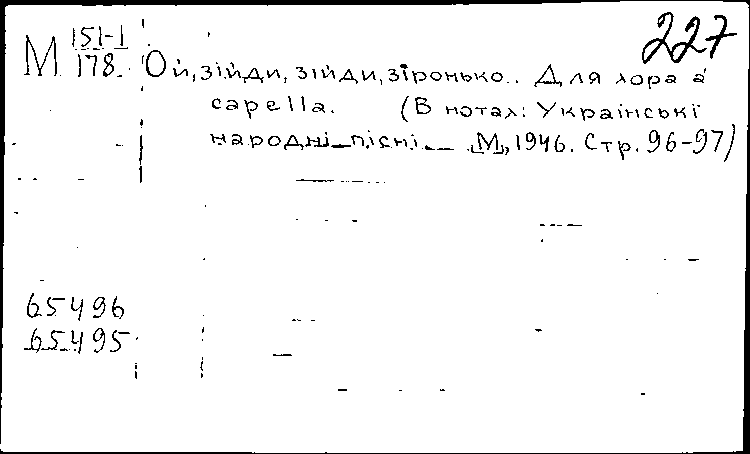 227
М 151-1
178. Ой, зійди, зійди, зіронько.. Для хора а
capella. (В нотах: Українські
народні пісні. М, 1946. Стр. 96-97)
65496
65495